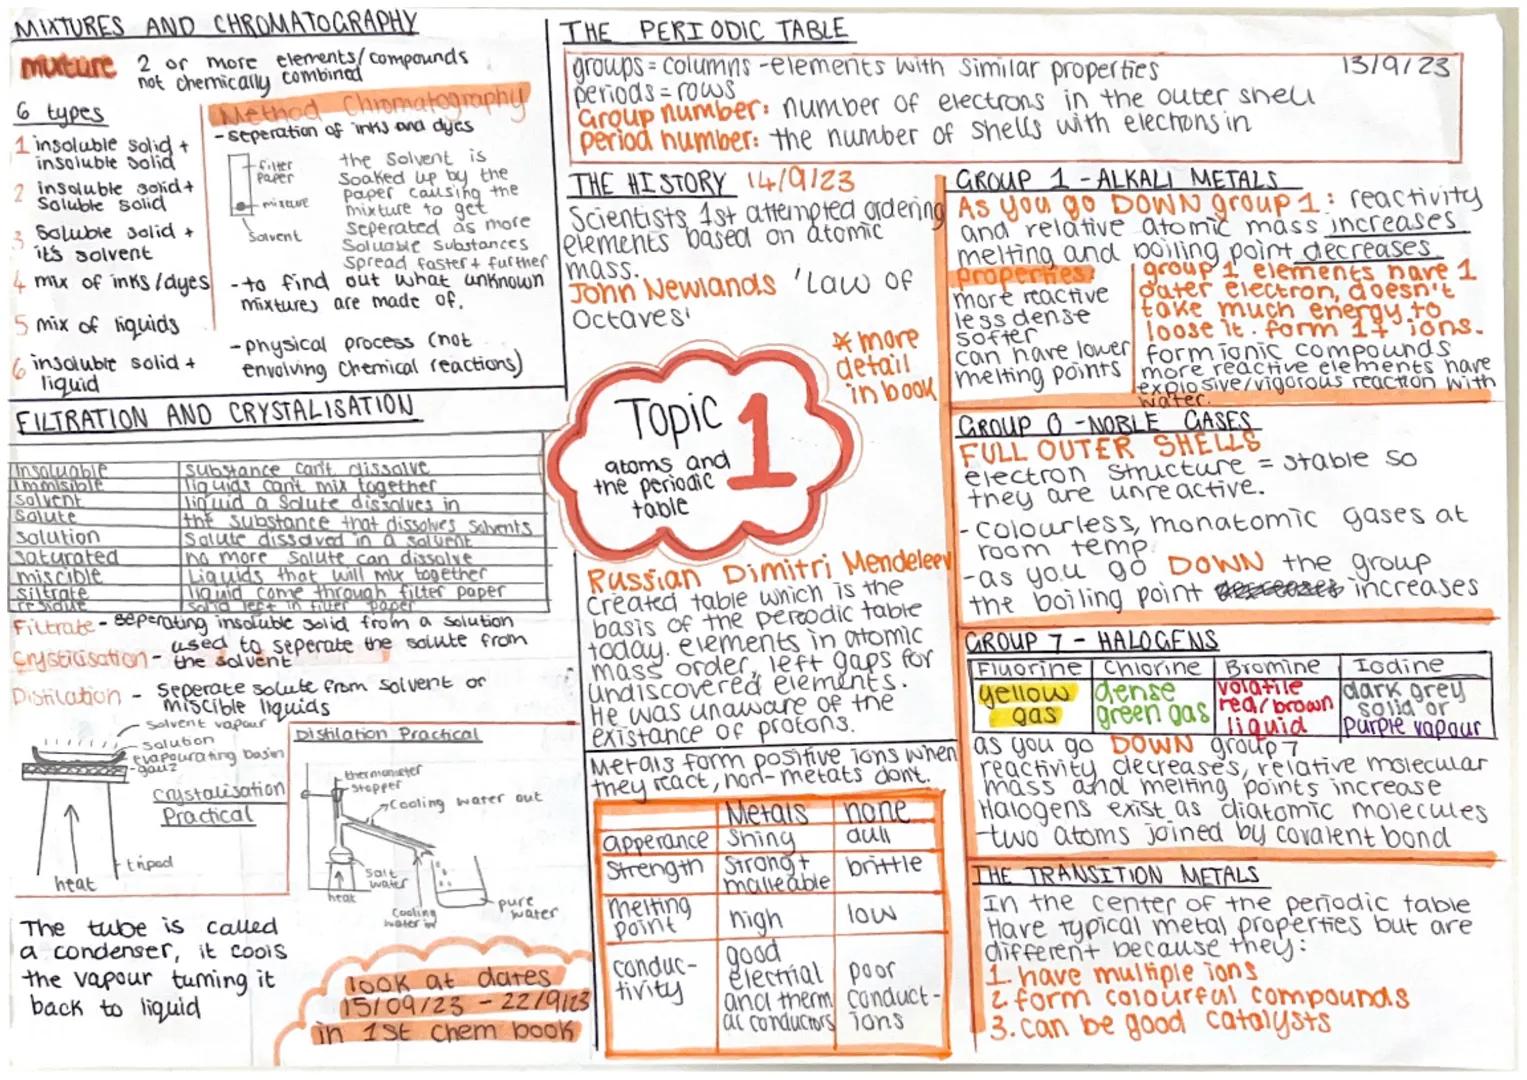 MIXTURES AND CHROMATOGRAPHY
mixture 2 or more elements/compounds
not chemically combined
6 types
1 insoluble solid +
insoluble solid
2 insoluble solid +
soluble solid
3 soluble solid +
it's solvent
4 mix of inks/dyes
5 mix of liquids
6 insoluble solid +
liquid
Method Chromatography
-seperation of inks and dyes
filter
paper
mixture
solvent
the solvent is
soaked up by the
paper causing the
mixture to get
seperated as more
soluable substances
spread faster + further
-to find out what unknown
mixtures are made of.
-physical process (not
envolving chemical reactions)
FILTRATION AND CRYSTALISATION
insoluable substance can't dissolve
immisible liquids cant mix together
solvent liquid a solute dissolves in
solute the substance that dissolves solvents
solution solute dissolved in a solvent
saturated no more solute can dissolve
miscible liquids that will mix together
siltrate liquid come through filter paper
residue solid left in filter paper
Filtrate - seperating insoluble solid from a solution
Crystilisation - used to seperate the solute from
the solvent
Distilation - seperate solute from solvent or
miscible liquids
solvent vapour
solution
evapourating basin
-gauz
crystalisation
Practical
tripod
heat
Distilation Practical
thermometer
stopper
cooling water out
salt
water
heat
cooling
water in
pure
water
The tube is called
a condenser, it cools
the vapour turning it
back to liquid
look at dates
15/09/23 - 22/9/23
in 1st chem book
THE PERIODIC TABLE
groups = columns -elements with similar properties 13/9/23
periods = rows
Group number: number of electrons in the outer shell
period number: the number of shells with electrons in
THE HISTORY 14/9/23
Scientists 1st attempted ordering
elements based on atomic
mass.
John Newlands 'Law of
Octaves'
* more
detail
in book
Topic 1
atoms and
the periodic
table
Russian Dimitri Mendeleev
created table which is the
basis of the pereodic table
today. elements in atomic
mass order, left gaps for
undiscovered elements.
He was unaware of the
existance of protons.
Metals form positive ions when
they react, non-metals dont.
Metals none
apperance shiny dull
strength strong + malleable brittle
melting point high low
conduc-tivity good electrial and thermal conductors poor conduct-ions
GROUP 1 - ALKALI METALS
As you go DOWN group 1: reactivity
and relative atomic mass increases
melting and boiling point decreases
properties:
more reactive
less dense
softer
can have lower
melting points
group 1 elements have 1
outer electron, doesn't
take much energy to
loose it. form 1+ ions.
form ionic compounds
more reactive elements have
explosive/vigorous reaction with
water.
GROUP 0 - NOBLE GASES
FULL OUTER SHELLS
electron structure = stable so
they are unreactive.
- colourless, monatomic gases at
room temp.
-as you go DOWN the group
the boiling point increases
GROUP 7 - HALOGENS
Fluorine Chlorine Bromine Iodine
yellow gas dense green gas volatile red/brown liquid dark grey solid or purple vapour
as you go DOWN group 7
reactivity decreases, relative molecular
mass and melting points increase
Halogens exist as diatomic molecules
-two atoms joined by covalent bond
THE TRANSITION METALS
In the center of the periodic table
Have typical metal properties but are
different because they:
1. have multiple ions
2. form colourful compounds
3. can be good catalysts